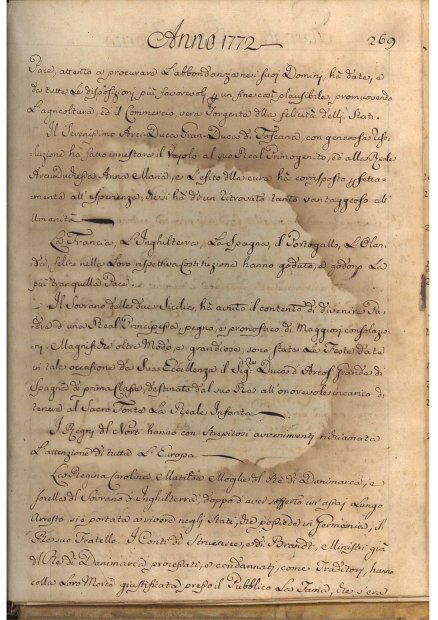 Anno 1772 269
Pace, attento a procurare l'abbondanza nei suoi Domini, hà date, e
da tutte le disposizioni più favorevoli un fine così plausibile, promuovendo
l'agricoltura, ed il Commercio, vera Sorgente della felicità delli Stati.
Il Serenissimo Arci-Duca Gran-Duca di Toscana, con generosa riso-
luzione hà fatto innestare il Vajolo al suo Real Primogenito, ed alla Reale
Arciduchessa Anna Maria, e l'esito della cura hà corrisposto
mente all'esperienza, che si hà di un ritrovato tanto vantaggioso all'
Umanità
La Francia, l'Inghilterra, la Spagna, il Portogallo, l'Olan-
da, felici nella loro rispettiva Costituzione hanno goduto, e godono la
più tranquilla Pace.
Il Sovrano delle due Sicilie, hà avuto il contento di divenire Pa-
dre d'una Real Principessa, pegno, e pronostico di Maggiori consolazio-
ni. Magnifiche oltre Modo, e grandiose, sono state le Feste date
in tale occasione da Sua Eccellenza il Sig. Duca d'Arcos Grande di
Spagna di prima Classe, destinato dal suo Rè all'onorevole incarico di
tenere al Sacro Fonte la Reale Infanta.
I Regni del Nort hanno con strepitosi avvenimenti richiamata
l'attenzione di tutta l'Europa
La Regina Carolina Matilde Moglie del Rè di Danimarca, e
sorella del Sovrano d'Inghilterra, doppo d'aver sofferto un'assai lungo
Arresto si è portata a vivere negli Stati, che possiede in Germania, il
Rè suo Fratello. I Conti di Struensee, e di Brandt, Ministri già
del Rè di Danimarca, processati, e condannati, come Traditori, hanno
colla loro Morte giustificata presso il Pubblico la Fama, che s'era